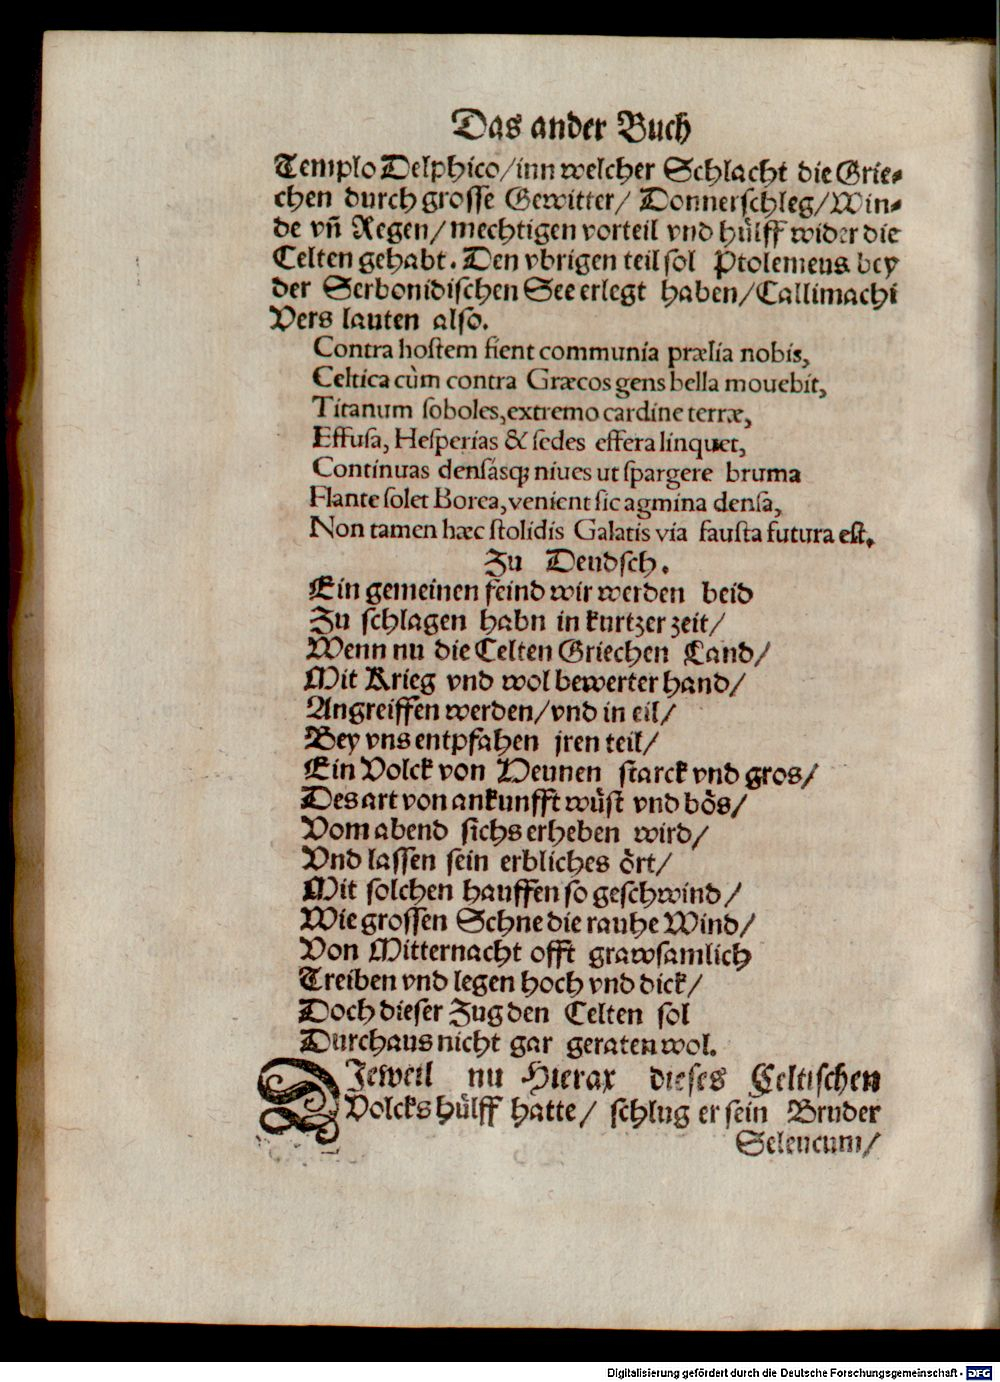 Das ander Buch
Templo Delphico/inn welcher Schlacht die Grie⸗
chen durch grosse Gewitter/ Donnerschleg/Win⸗
de vñ Regen/mechtigen vorteil vnd hülff wider die
Celten gehabt. Den vbrigen teil sol Ptolemeus bey
der Serbonidischen See erlegt haben/Callimachi
Vers lauten also.
Contra hostem fient communia prælia nobis,
Celtica cùm contra Græcos gens bella mouebit,
Titanum soboles, extremo cardine terræ,
Effusa, Hesperias & sedes effera linquet,
Continuas densásq; niues ut spargere bruma
Flante solet Borea, venient sic agmina densa,
Non tamen hæc stolidis Galatis via fausta futura est.
Zu Deudsch.
Ein gemeinen feind wir werden beid
Zu schlagen habn in kurtzer zeit/
Wenn nu die Celten Griechen Land/
Mit Krieg vnd wol bewerter hand/
Angreiffen werden/vnd in eil/
Bey vns entpfahen jren teil/
Ein Volck von Heunen starck vnd gros/
Des art von ankunfft wüst vnd bös/
Vom abend sichs erheben wird/
Vnd lassen sein erbliches ört/
Mit solchen hauffen so geschwind/
Wie grossen Schne die rauhe Wind/
Von Mitternacht offt grawsamlich
Treiben vnd legen hoch vnd dick/
Doch dieser Zug den Celten sol
Durchaus nicht gar geraten wol.
DJeweil nu Hierax dieses Celtischen
Volcks hülff hatte/ schlug er sein Bruder
Seleucum/
Digitalisierung gefördert durch die Deutsche Forschungsgemeinschaft - DFG